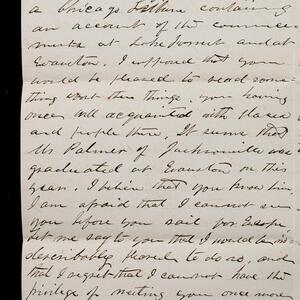 a Chicago Tribune containing
an account of the commence-
ments at Lake Forest and at
Evanston. I supposed that you
would be pleased to read some-
thing about these things, you having
once well acquainted with places
and people there. It seems that
Mr Palmer of Jacksonville was
graduated at Evanston on this
year. I believe that you knew him.
I am afraid that I cannot see
you before you sail for Europe.
Let me say to you that I would be in-
describably pleased to do so, and
that I regret that I cannot have the
privilege of meeting you once more